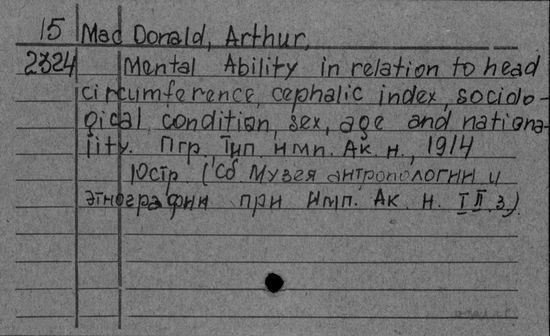 15 Mac Donald, Arthur,
2324 Mental Ability in relation to head
circumference, cephalic index, sociolo-
gical condition, sex, age and nationa-
lity. Пгр. Тип Имп. Ак. н., 1914
10стр (Сб Музея антропологии и
этнографии при Имп. Ак. Н. I II. 3.)